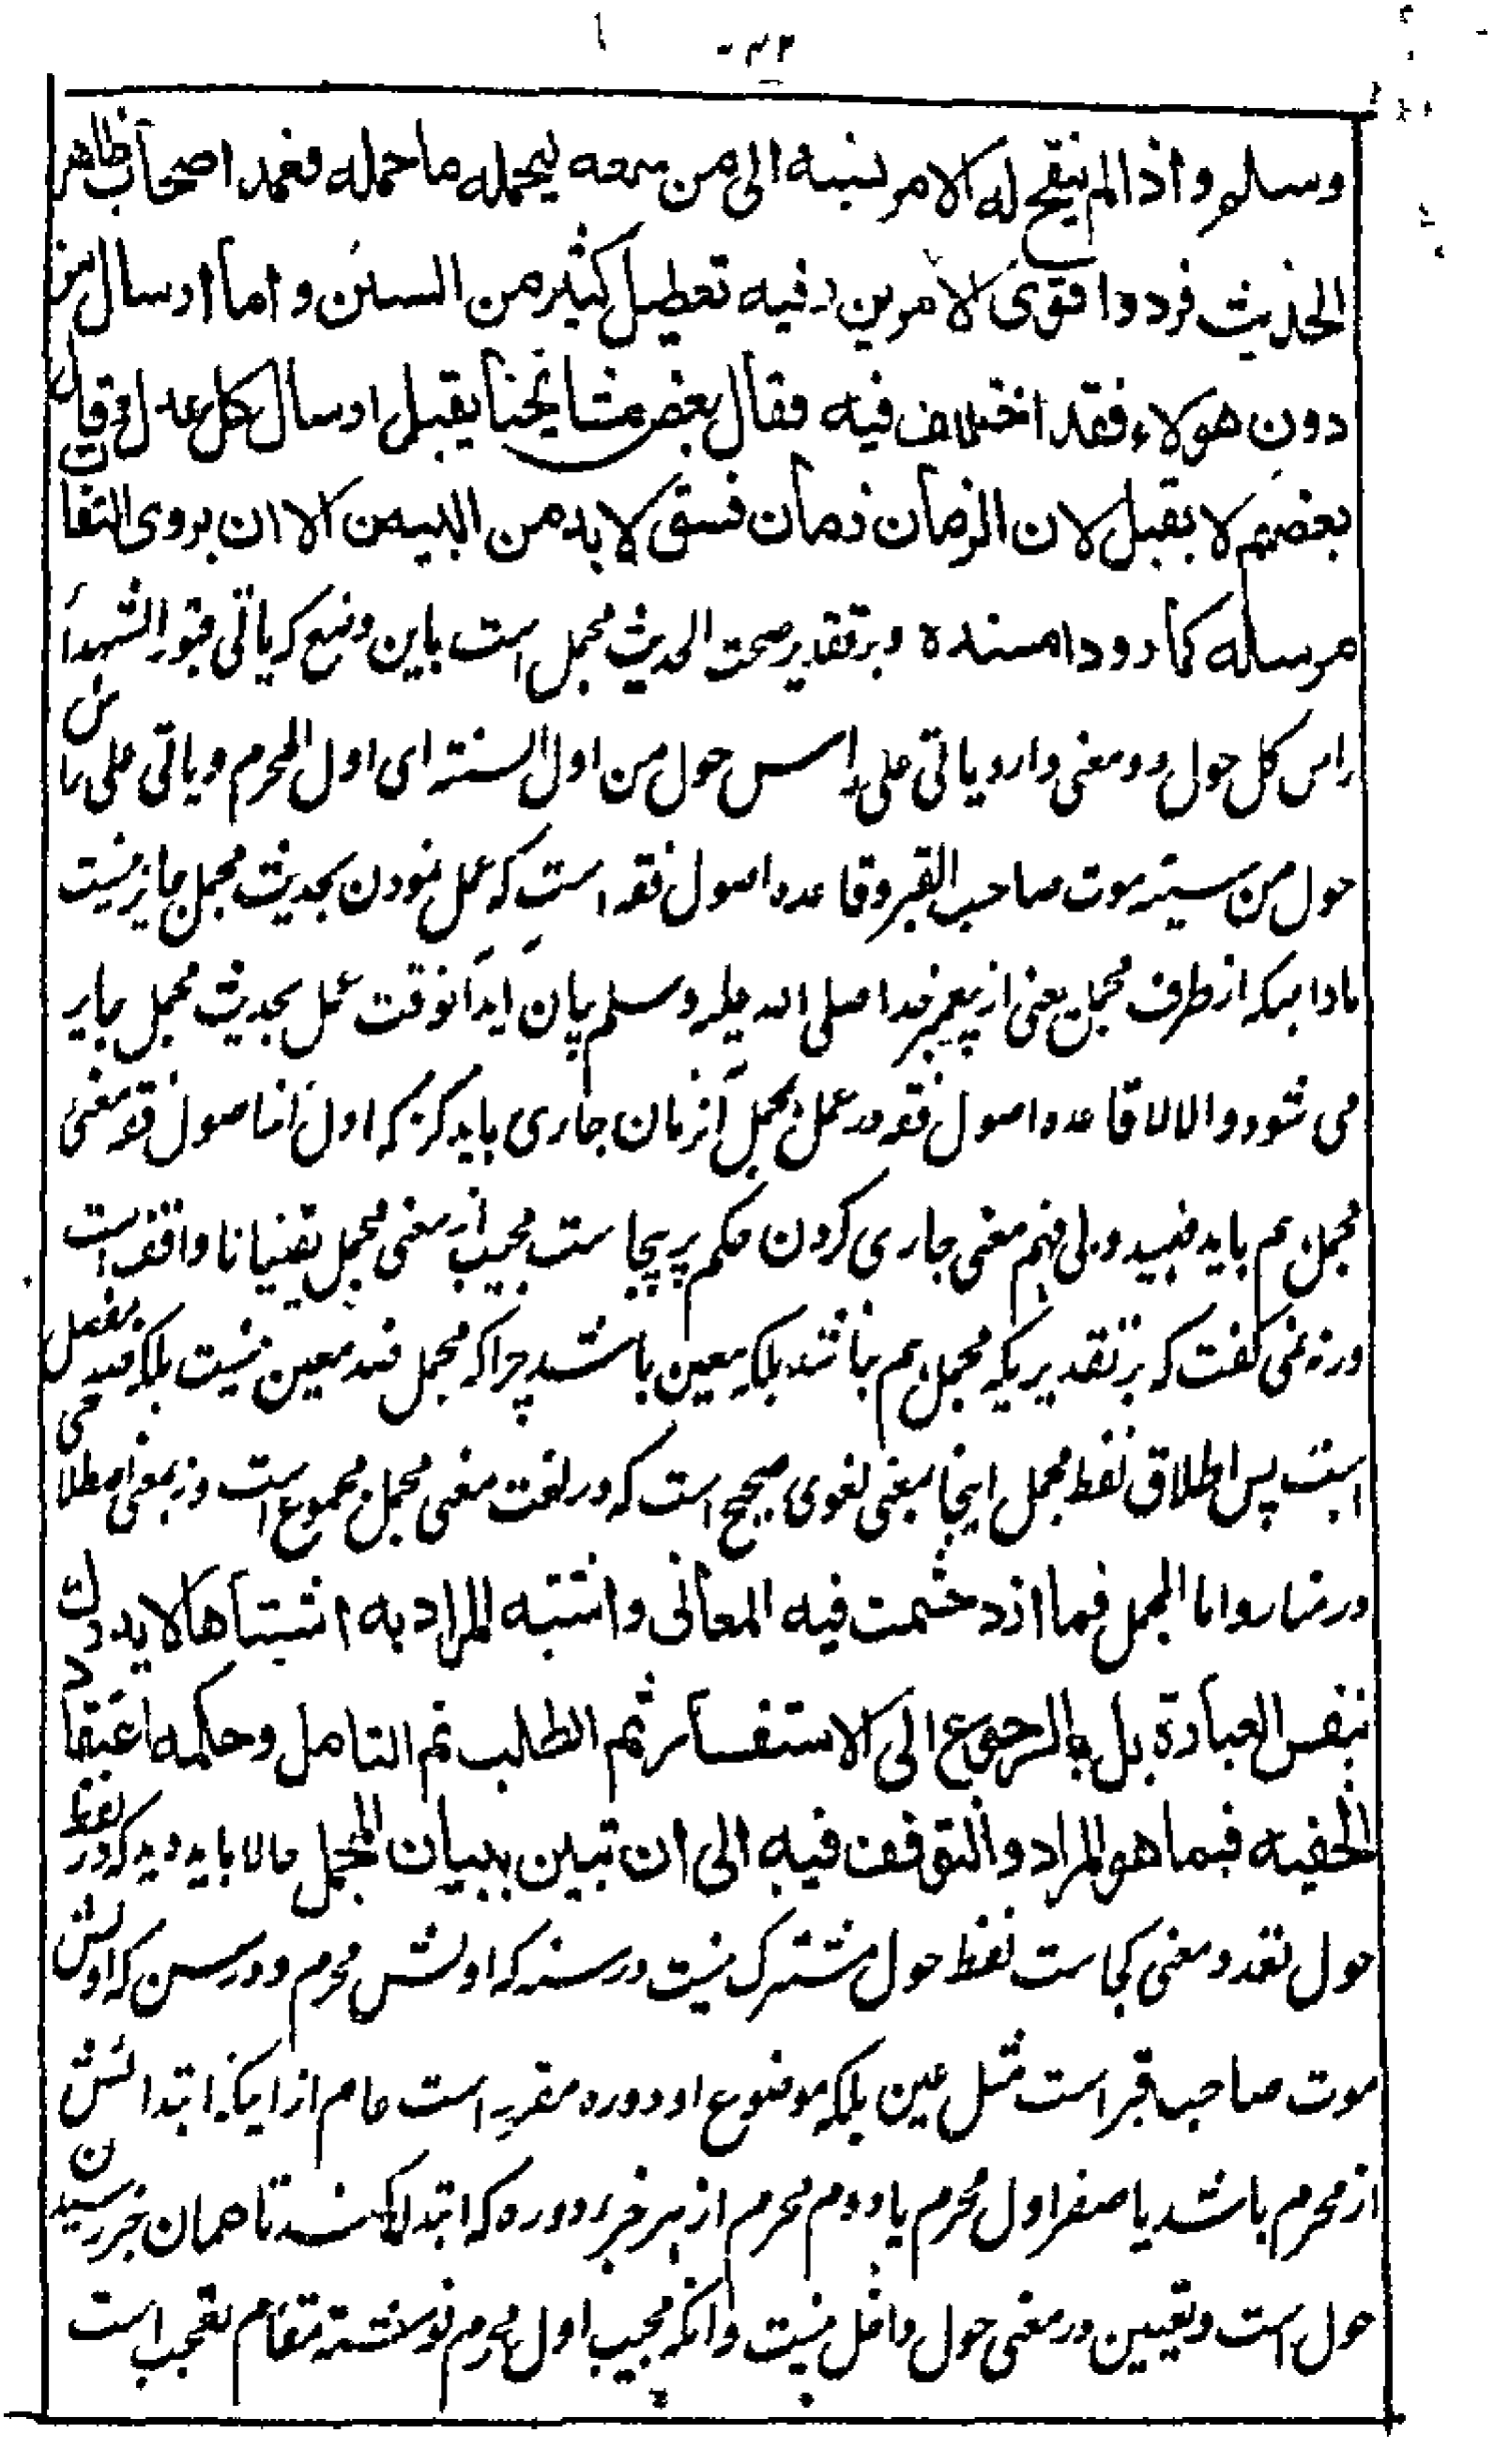 وسلم واذا لم يتضح له الامر نسبه الى من سمعه ليحمله ما حمله فعمد اصحاب ظاهر
الحديث فردوا اقوى الامرين وفيه تعطيل كثير من السنن واما ارسال من
دون هولاء فقد اختلف فيه فقال بعض مشايخنا يقبل ارسال كل عدل وقال
بعضهم لا يقبل لان الزمان زمان فسق لا بد من البيان الا ان يروى الثقات
مرسله كما رووا مسنده وبر تقدير صحت الحديث مجمل است باين وضع كه ياتى قبور الشهداء
راس كل حول دو معنى دارد ياتى على راس حول من اول السنة اى اول المحرم وياتى على راس
حول من سنة موت صاحب القبر وقاعده اصول فقه است كه عمل نمودن بحديث مجمل جايز نيست
مادامیکه از طرف مجمل يعنى از پيغمبر خدا صلى الله عليه وسلم بيان آيد آنوقت عمل بحديث مجمل جايز
مى شود والا لا قاعده اصول فقه در عمل مجمل آنزمان جارى بايد كرد كه اول از اصول فقه معنى
مجمل هم بايد فهميد و بى فهم معنى جارى كردن حكم پر بيجاست مجيب از معنى مجمل يقينا ناواقف است
ورنه نمى گفت كه بر تقديريكه مجمل هم نباشد بلكه معين باشد چرا كه مجمل ضد معين نيست بلكه ضد مفصل
است پس اطلاق لفظ مجمل اينجا بمعنى لغوى صحيح است كه در لغت معنى مجمل مجموع است ونه بمعنى اصطلاحى
در منار واما المجمل فما ازدحمت فيه المعانى واشتبه المراد به اشتباها لا يدرك
بنفس العبارة بل بالرجوع الى الاستفسار ثم الطلب ثم التامل وحكمه اعتقاد
الحقيه فيما هو المراد والتوقف فيه الى ان تبين ببيان المجمل حالا بايد ديد كه در لفظ
حول تعدد معنى كجاست لفظ حول مشترك نيست در سنه كه اولش محرم و در سن كه اولش
موت صاحب قبر است مثل عين بلكه موضوع او دوره مقرره است عام از اينكه ابتدائش
از محرم باشد يا صفر اول محرم يا دوم محرم از هر جزء دوره كه ابتدا كنند تا همان جزء رسيدن
حول است وتعيين در معنى حول داخل نيست وانكه مجيب اول محرم نوشته مقام تعجب است